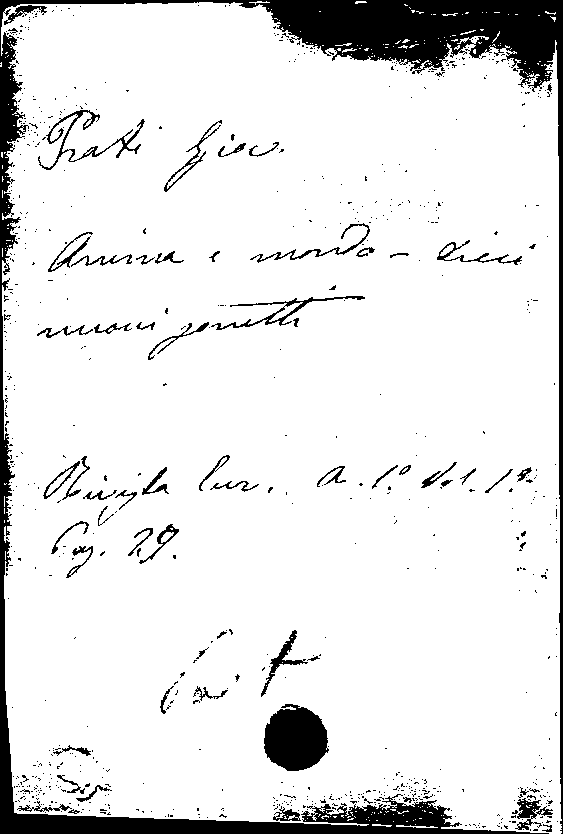 Prati Giov.
Anima e mondo - dieci
nuovi sonetti
Rivista Eur. A. 1.º Vol. 1.º
Pag. 29.